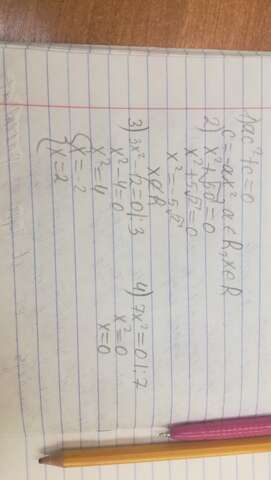 1) ax²+c=0
c=-ax² a∈R, x∈R
2) x²+5√5=0
x²+5√5=0
x²=-5√5
x∉R
3) 3x²-12=0|:3
x²-4=0
x²=4
{x=-2
{x=2
4) 7x²=0|:7
x²=0
x=0